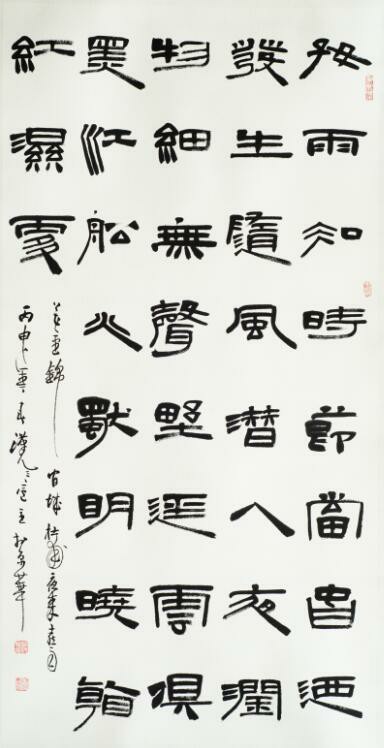 好雨知時節當旾迺
發生隨風潛入夜潤
物細無聲野逕雲俱
黑江舩火獨明曉看
紅濕處
花重錦官城 杜甫
丙申